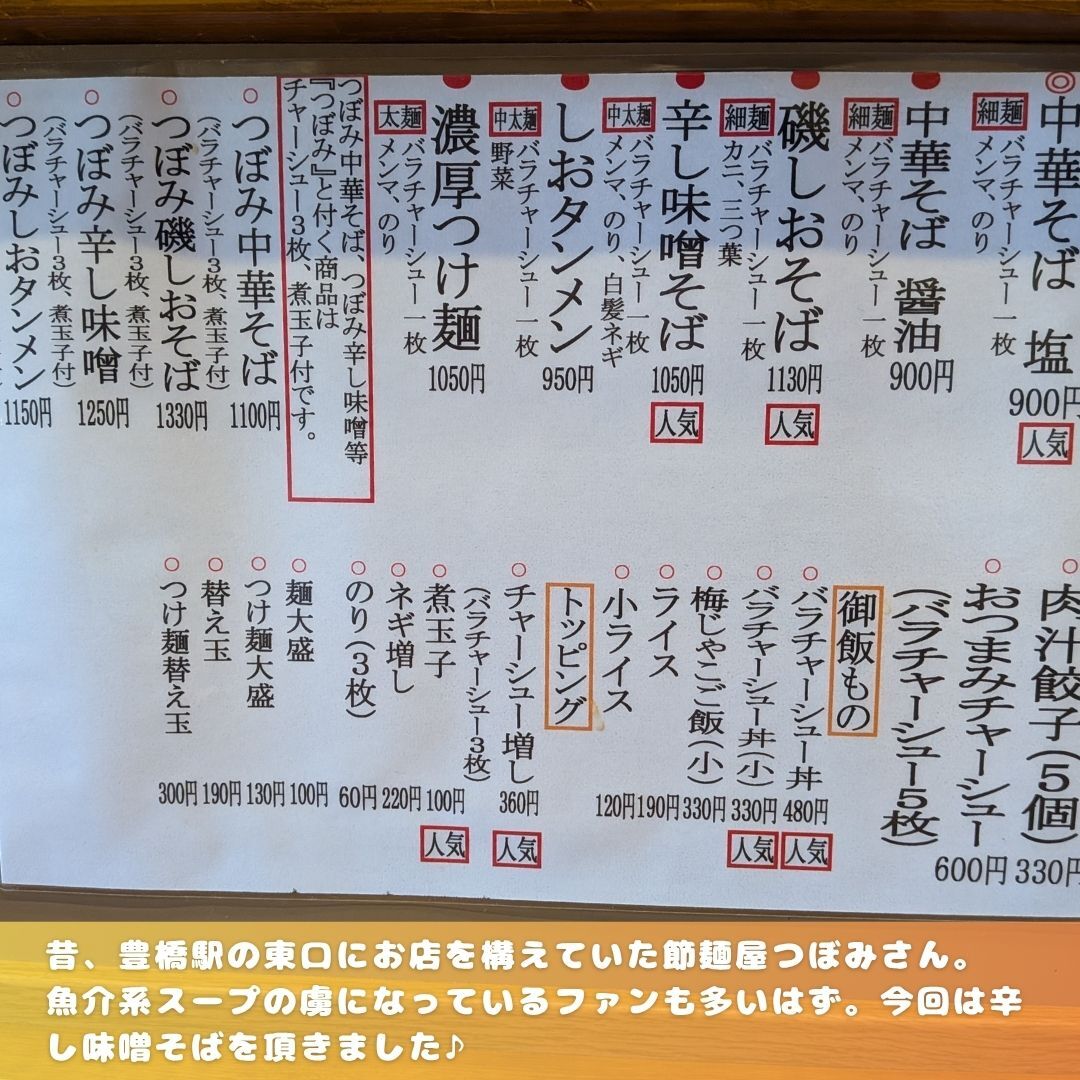 中華そば 塩
細麺
バラチャーシュー一枚
メンマ、のり
900円
人気
中華そば 醤油
細麺
バラチャーシュー一枚
メンマ、のり
900円
磯しおそば
細麺
バラチャーシュー一枚
カニ、三つ葉
1130円
人気
辛し味噌そば
中太麺
バラチャーシュー一枚
メンマ、のり、白髪ネギ
1050円
人気
しおタンメン
中太麺
バラチャーシュー一枚
野菜
950円
濃厚つけ麺
太麺
バラチャーシュー一枚
メンマ、のり
1050円
つぼみ中華そば、つぼみ辛し味噌等
『つぼみ』と付く商品は
チャーシュー3枚、煮玉子付です。
つぼみ中華そば
(バラチャーシュー3枚、煮玉子付)
1100円
つぼみ磯しおそば
(バラチャーシュー3枚、煮玉子付)
1330円
つぼみ辛し味噌
(バラチャーシュー3枚、煮玉子付)
1250円
つぼみしおタンメン
1150円
肉汁餃子(5個)
330円
おつまみチャーシュー
(バラチャーシュー5枚)
600円
御飯もの
バラチャーシュー丼
480円
人気
バラチャーシュー丼(小)
330円
人気
梅じゃこご飯(小)
330円
ライス
190円
小ライス
120円
トッピング
チャーシュー増し
(バラチャーシュー3枚)
360円
人気
煮玉子
100円
人気
ネギ増し
220円
のり(3枚)
60円
麺大盛
100円
つけ麺大盛
130円
替え玉
190円
つけ麺替え玉
300円
昔、豊橋駅の東口にお店を構えていた節麺屋つぼみさん。
魚介系スープの虜になっているファンも多いはず。今回は辛
し味噌そばを頂きました♪